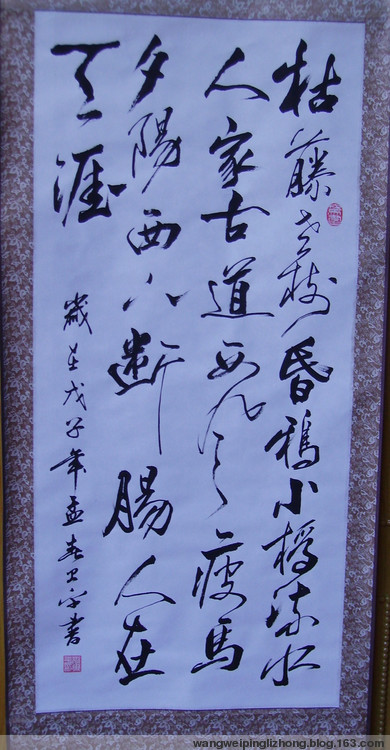 枯藤老树昏鴉小橋流水
人家古道西风瘦馬
夕陽西下斷腸人在
天涯
歲在戊子年孟春卫平書
wangweipinglizhong.blog.163.com